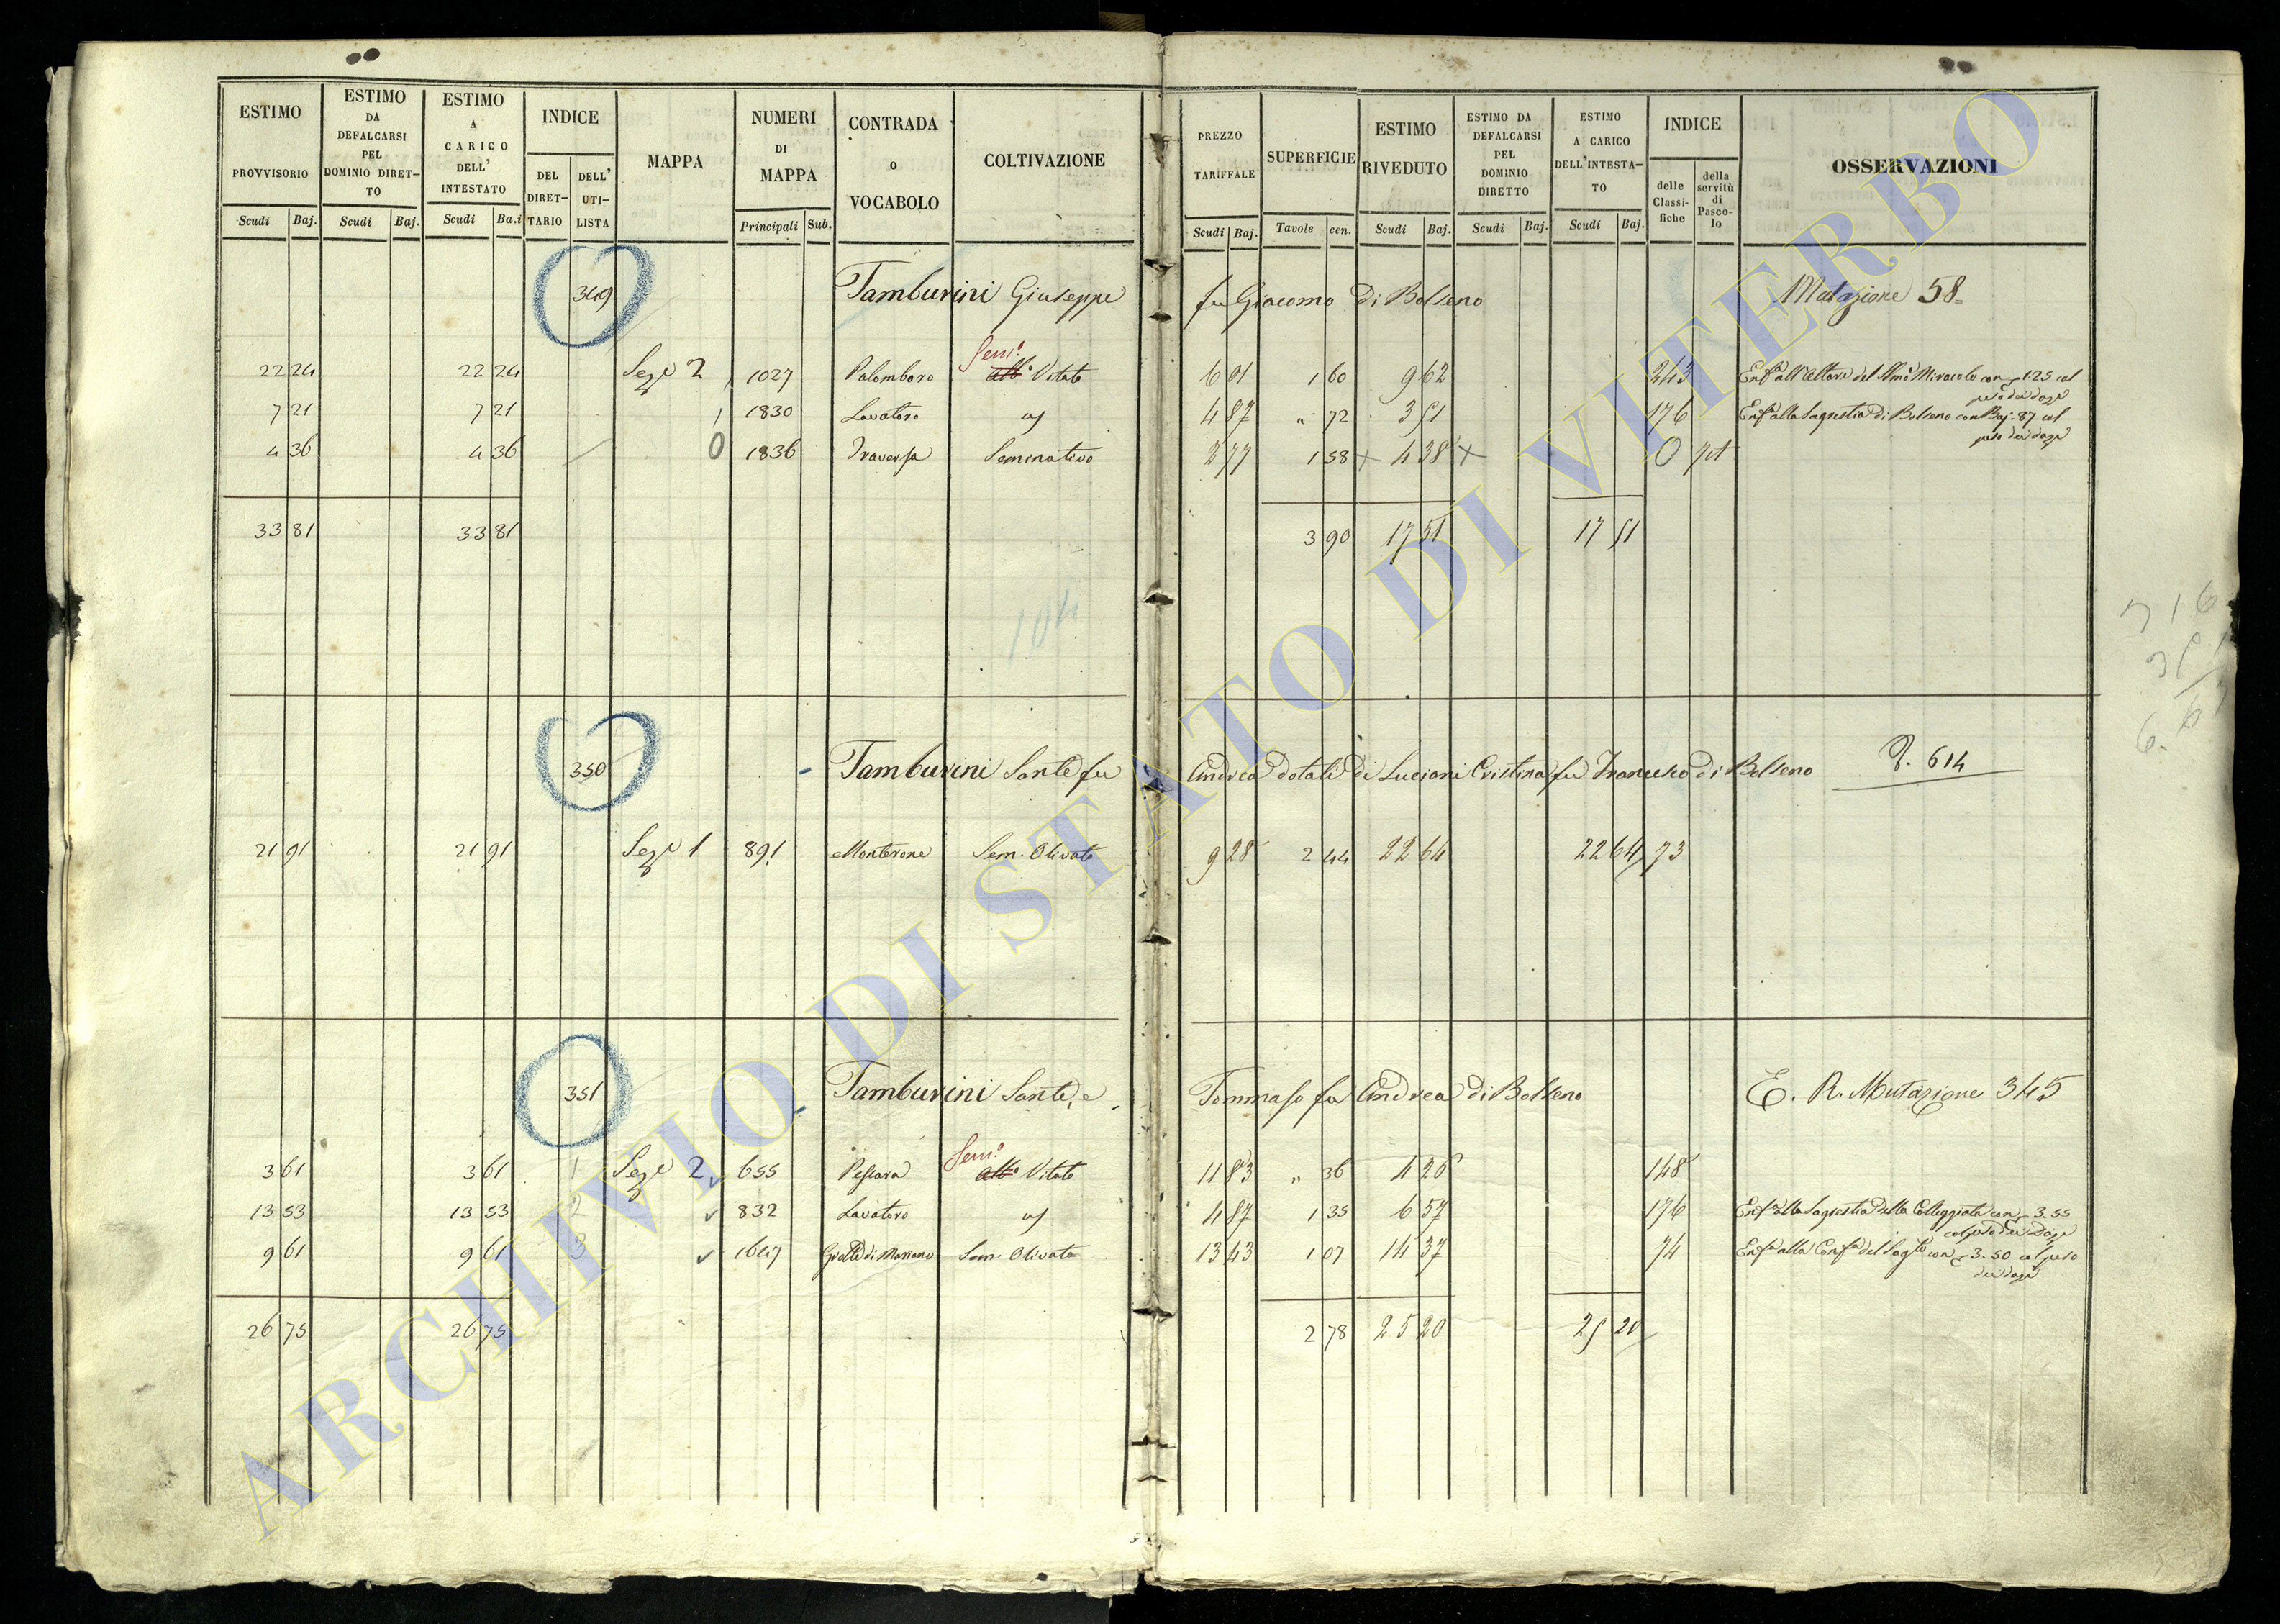 ESTIMO PROVVISORIO
ESTIMO DA DEFALCARSI PEL DOMINIO DIRET-TO
ESTIMO A CARICO DELL' INTESTATO
INDICE
DEL DIRET-TARIO
DELL' UTI-LISTA
MAPPA
NUMERI DI MAPPA
CONTRADA o VOCABOLO
COLTIVAZIONE
PREZZO TARIFFALE
SUPERFICIE
ESTIMO RIVEDUTO
ESTIMO DA DEFALCARSI PEL DOMINIO DIRETTO
ESTIMO A CARICO DELL'INTESTA-TO
INDICE
delle Classi-fiche
della servitù di Pasco-lo
OSSERVAZIONI
Scudi Baj. Scudi Baj. Scudi Ba.i Principali Sub. Scudi Baj. Tavole cen. Scudi Baj. Scudi Baj. Scudi Baj.
349 Tamburini Giuseppe fu Giacomo di Bolseno Mutazione 58
Sem.º
22 24 22 24 Sez.e 2 1027 Palombaro Alb.º Vitato 6 01 1 60 9 62 243 Enf.a all'Altare del SSmo Miracolo con 1.25 col
peso dei dazi
7 21 7 21 1830 Lavatoro id 4 87 " 72 3 51 176 Enf.a alla Sagrestia di Bolseno con Baj. 87 col
peso dei dazi
4 36 4 36 0 1836 Traversa Seminativo 2 77 1 58 × 4 38 × 0
33 81 33 81 3 90 17 51 17 51
104
716
350 Tamburini Sante fu Andrea dotati di Luciani Cristina fu Francesco di Bolseno R. 614
21 91 21 91 Sez.e 1 891 Monterone Sem. Olivato 9 28 2 44 22 64 22 64 73
351 Tamburini Sante, e Tommaso fu Andrea di Bolseno E. R. Mutazione 345
Sem.º
3 61 3 61 1 Sez.e 2 655 Pescara Alb.º Vitato 11 83 " 36 4 26 148
13 53 13 53 2 832 Lavatoro id 4 87 1 35 6 57 176 Enf.a alla Sagrestia della Colleggiata con 3.55
col peso dei Dazi
9 61 9 61 3 1647 Grotte di Mariano Sem. Olivato 13 43 1 07 14 37 74 Enf.a alla Conf.a del Sagto con 3.50 col peso
dei dazi
26 75 26 75 2 78 25 20 25 20
ARCHIVIO DI STATO DI VITERBO